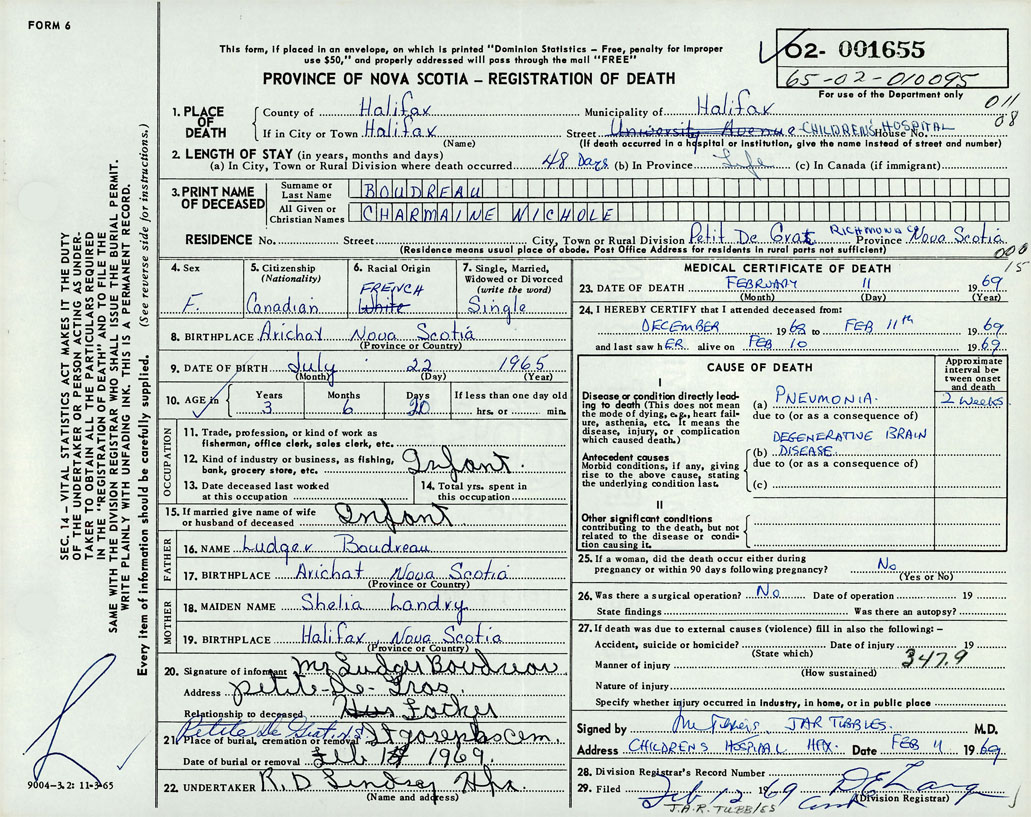 FORM 6
This form, if placed in an envelope, on which is printed "Dominion Statistics – Free, penalty for improper
use $50," and properly addressed will pass through the mail "FREE"
PROVINCE OF NOVA SCOTIA – REGISTRATION OF DEATH
02- 001655
65-02-010095
For use of the Department only
011
08
SEC. 14 – VITAL STATISTICS ACT MAKES IT THE DUTY
OF THE UNDERTAKER OR PERSON ACTING AS UNDER-
TAKER TO OBTAIN ALL THE PARTICULARS REQUIRED
IN THE "REGISTRATION OF DEATH" AND TO FILE THE
SAME WITH THE DIVISION REGISTRAR WHO SHALL ISSUE THE BURIAL PERMIT.
WRITE PLAINLY WITH UNFADING INK. THIS IS A PERMANENT RECORD.
Every item of information should be carefully supplied. (See reverse side for instructions.)
1. PLACE OF DEATH
County of Halifax Municipality of Halifax
If in City or Town Halifax Street University Avenue CHILDREN'S HOSPITAL House No.
(Name) (If death occurred in a hospital or institution, give the name instead of street and number)
2. LENGTH OF STAY (in years, months and days)
(a) In City, Town or Rural Division where death occurred 48 Days (b) In Province Life (c) In Canada (if immigrant)
3. PRINT NAME OF DECEASED
Surname or Last Name BOUDREAU
All Given or Christian Names CHARMAINE NICHOLE
RESIDENCE No. Street City, Town or Rural Division Petit De Grat RICHMOND Co Province Nova Scotia
(Residence means usual place of abode. Post Office Address for residents in rural parts not sufficient)
000
15
4. Sex
F.
5. Citizenship
(Nationality)
Canadian
6. Racial Origin
FRENCH
White
7. Single, Married,
Widowed or Divorced
(write the word)
Single
8. BIRTHPLACE Arichat Nova Scotia
(Province or Country)
9. DATE OF BIRTH July 22 1965
(Month) (Day) (Year)
10. AGE in Years Months Days If less than one day old
3 6 20 hrs. or min.
OCCUPATION
11. Trade, profession, or kind of work as
fisherman, office clerk, sales clerk, etc.
12. Kind of industry or business, as fishing,
bank, grocery store, etc. Infant.
13. Date deceased last worked
at this occupation
14. Total yrs. spent in
this occupation
15. If married give name of wife
or husband of deceased Infant
FATHER
16. NAME Ludger Boudreau
17. BIRTHPLACE Arichat Nova Scotia
(Province or Country)
MOTHER
18. MAIDEN NAME Shelia Landry
19. BIRTHPLACE Halifax, Nova Scotia
(Province or Country)
20. Signature of informant Mr Ludger Boudreau
Address Petite-De-Gras.
Relationship to deceased Father
21. Place of burial, cremation or removal Petite De Grat N.S. St Josephs Cem.
Date of burial or removal Feb 1969
22. UNDERTAKER R.D Lindsay Hfx.
(Name and address)
9004-3.2: 11-3-65
MEDICAL CERTIFICATE OF DEATH
23. DATE OF DEATH FEBRUARY 11 1969
(Month) (Day) (Year)
24. I HEREBY CERTIFY that I attended deceased from:
DECEMBER 1968 to FEB 11th 1969
and last saw hER alive on FEB 10 1969
CAUSE OF DEATH
Approximate
interval be-
tween onset
and death
I
Disease or condition directly lead-
ing to death (This does not
mean the mode of dying, e.g., heart fail-
ure, asthenia, etc. It means the
disease, injury, or complication
which caused death.)
(a) PNEUMONIA. 2 Weeks
due to (or as a consequence of)
Antecedent causes
Morbid conditions, if any, giving
rise to the above cause, stating
the underlying condition last.
DEGENERATIVE BRAIN
(b) DISEASE
due to (or as a consequence of)
(c)
II
Other significant conditions
contributing to the death, but not
related to the disease or condi-
tion causing it.
25. If a woman, did the death occur either during
pregnancy or within 90 days following pregnancy? No
(Yes or No)
26. Was there a surgical operation? No Date of operation 19
State findings Was there an autopsy?
27. If death was due to external causes (violence) fill in also the following: –
Accident, suicide or homicide? Date of injury 19
(State which) 347.9
Manner of injury
(How sustained)
Nature of injury
Specify whether injury occurred in Industry, in home, or in public place
Signed by JAR TUBBLES. M.D.
Address CHILDRENS HOSPITAL HFX. Date FEB 11 1969
28. Division Registrar's Record Number
29. Filed Feb 12 1969
(Division Registrar)
J.A.R. TUBBLES